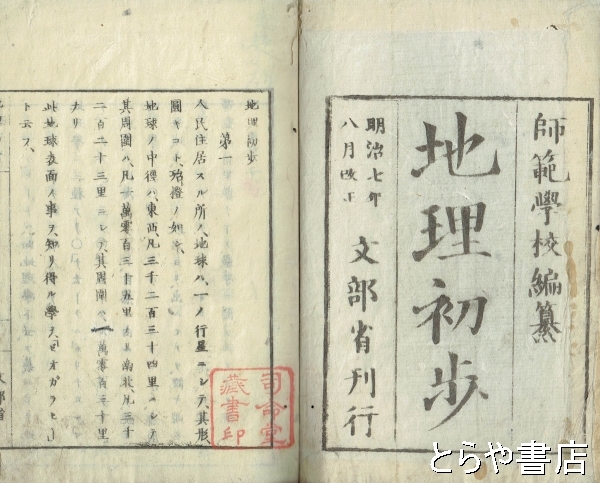 師範學校編纂
地理初步
明治七年
八月改正
文部省刊行
地理初步
第一
人民住居スル所ノ地球ハ、一ノ行星ニシテ、其形
圓キコト、殆橙ノ如シ
地球ノ中徑ハ、東西、凡三千二百三十四里ニシテ
其周圍ハ、凡一萬零百三十五里
南北、凡三千
二百二十三里ニシテ、其周圍
一萬零百三十里
ナリ
此地球表面ノ事ヲ知リ得ル學ヲ、ゼオガラヒー
ト云フ、
司命堂
藏書印
とらや書店